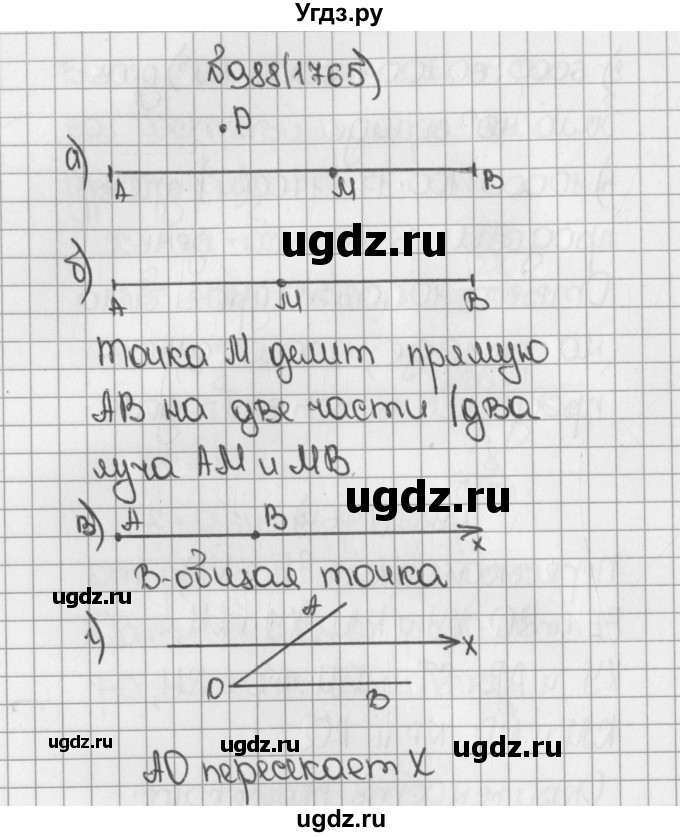 Угдз.ру
№988(1765)
.D
а)
A M B
ugdz.ru
б)
A M B
точка M делит прямую
AB на две части (два
луча AM и MB
ugdz.ru
в) A B x
B-общая точка
ugdz.ru
A
г) x
O B
ugdz.ru ugdz.ru ugdz.ru
AO пересекает X
ugdz.ru